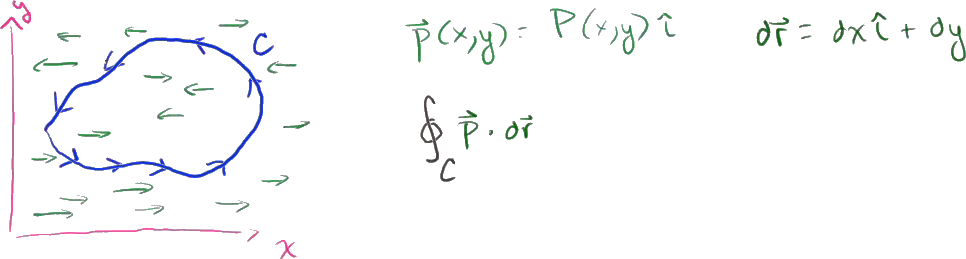 y
C
x
p⃗(x,y) = P(x,y) î
dr⃗ = dx î + dy
∮_C p⃗ · dr⃗